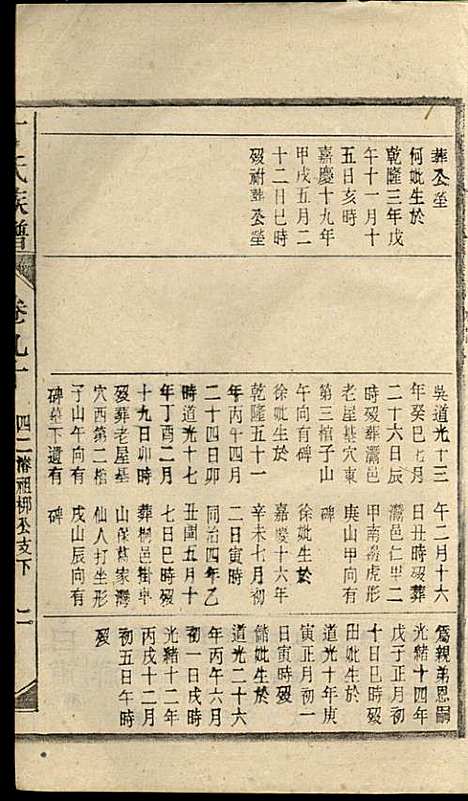 葬公塋
何妣生於
乾隆三年戊
午十一月十
五日亥時
嘉慶十九年
甲戌五月二
十二日巳時
歿祔葬公塋
吳道光十三
年癸巳七月
二十六日辰
時歿葬灊邑
老屋基穴東
第三棺子山
午向有碑
徐妣生於
乾隆五十一
年丙午四月
二十四日卯
時道光十七
年丁酉二月
十九日卯時
歿葬老屋基
穴西第二棺
子山午向有
碑墓下遺有
午二月十六
日丑時歿葬
灊邑仁里二
甲南衖虎形
庚山甲向有
碑
徐妣生於
嘉慶十六年
辛未七月初
二日寅時
同治四年乙
丑閏五月十
七日巳時歿
葬桐邑掛車
山保葛家灣
仙人打坐形
戌山辰向有
碑
爲親弟恩嗣
光緒十四年
戊子正月初
十日巳時歿
田妣生於
道光十年庚
寅正月初一
日寅時歿
儲妣生於
道光二十六
年丙午六月
初一日戌時
光緒十二年
丙戌十二月
初五日午時
歿
氏族譜
卷九十
四二房祖柳公支下
二